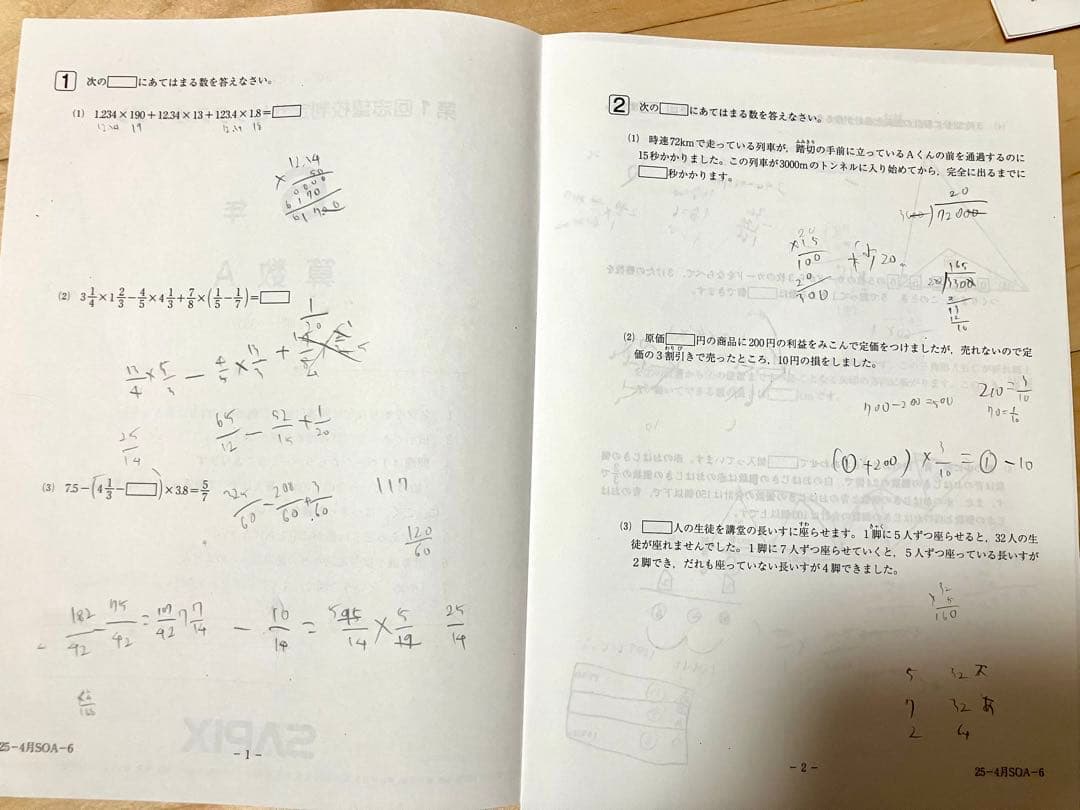 1 次の□にあてはまる数を答えなさい。
(1) 1.234×190+12.34×13+123.4×1.8=□
12.34 19 12.34 18
(2) 3 1/4×1 2/3−4/5×4 1/3+7/8×(1/5−1/7)=□
13/4×5/3−4/5×13/3+
65/12−52/15+1/20
25/14
(3) 7.5−(4 1/3−□)×3.8=5/7
117
120/60
182/42 75/42 = 107/42
−10/14=95/14×5/19 25/14
SAPIX
25−4月SOA−6
−1−
2 次の□にあてはまる数を答えなさい。
(1) 時速72kmで走っている列車が，踏切の手前に立っているAくんの前を通過するのに
15秒かかりました。この列車が3000mのトンネルに入り始めてから，完全に出るまでに
□秒かかります。
20
72000
20
×15
100
20
300
165
3300
(2) 原価□円の商品に200円の利益をみこんで定価をつけましたが，売れないので定
価の3割引きで売ったところ，10円の損をしました。
700−200=500
210=3/10
70=1/10
(①+200)×3/10=①−10
(3) □人の生徒を講堂の長いすに座らせます。1脚に5人ずつ座らせると，32人の生
徒が座れませんでした。1脚に7人ずつ座らせていくと，5人ずつ座っている長いすが
2脚でき，だれも座っていない長いすが4脚できました。
×32
5
160
5 32 不
7 32 あ
2 64
−2−
25−4月SOA−6